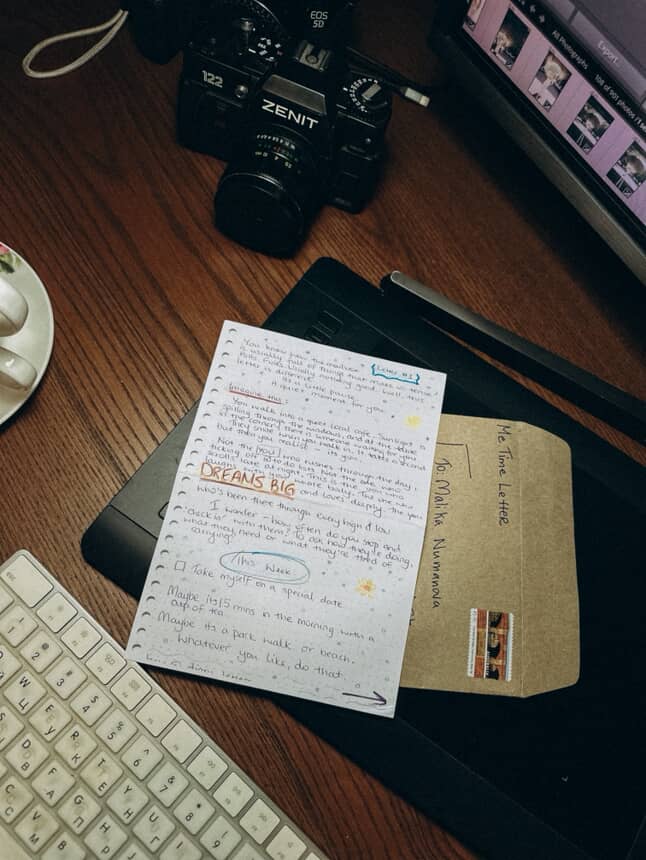 EOS
5D
122
ZENIT
Export...
All Photographs
108 of 901 photos
Letter #1
You know how the mailbox
is usually full of things that make us tense?
Bills. Fines. Usually nothing good. Well, this
letter is different.
It's a little pause.
A quiet moment for you.
Imagine this:
You walk into a quiet local cafe. Sunlight
spilling through the windows, and at the table
in the corner there is someone waiting for you.
They smile when you walk in. It takes a second
but then you realise - it's you.
Not the you who rushes through the day,
ticking off to do lists. Not the one who
scrolls late at night. This is the you who
laughs with your whole belly. The one who
DREAMS BIG and loves deeply. The you
who's been there through every high & low
I wonder - how often do you stop and
"check in" with them? To ask how they're doing,
what they need or what they're tired of
carrying?
This Week:
Take myself on a special date
Maybe its 15 mins in the morning with a
cup of tea.
Maybe its a park walk or beach.
Whatever you like, do that.
Me Time Letter
To: Malika Numanova
esc